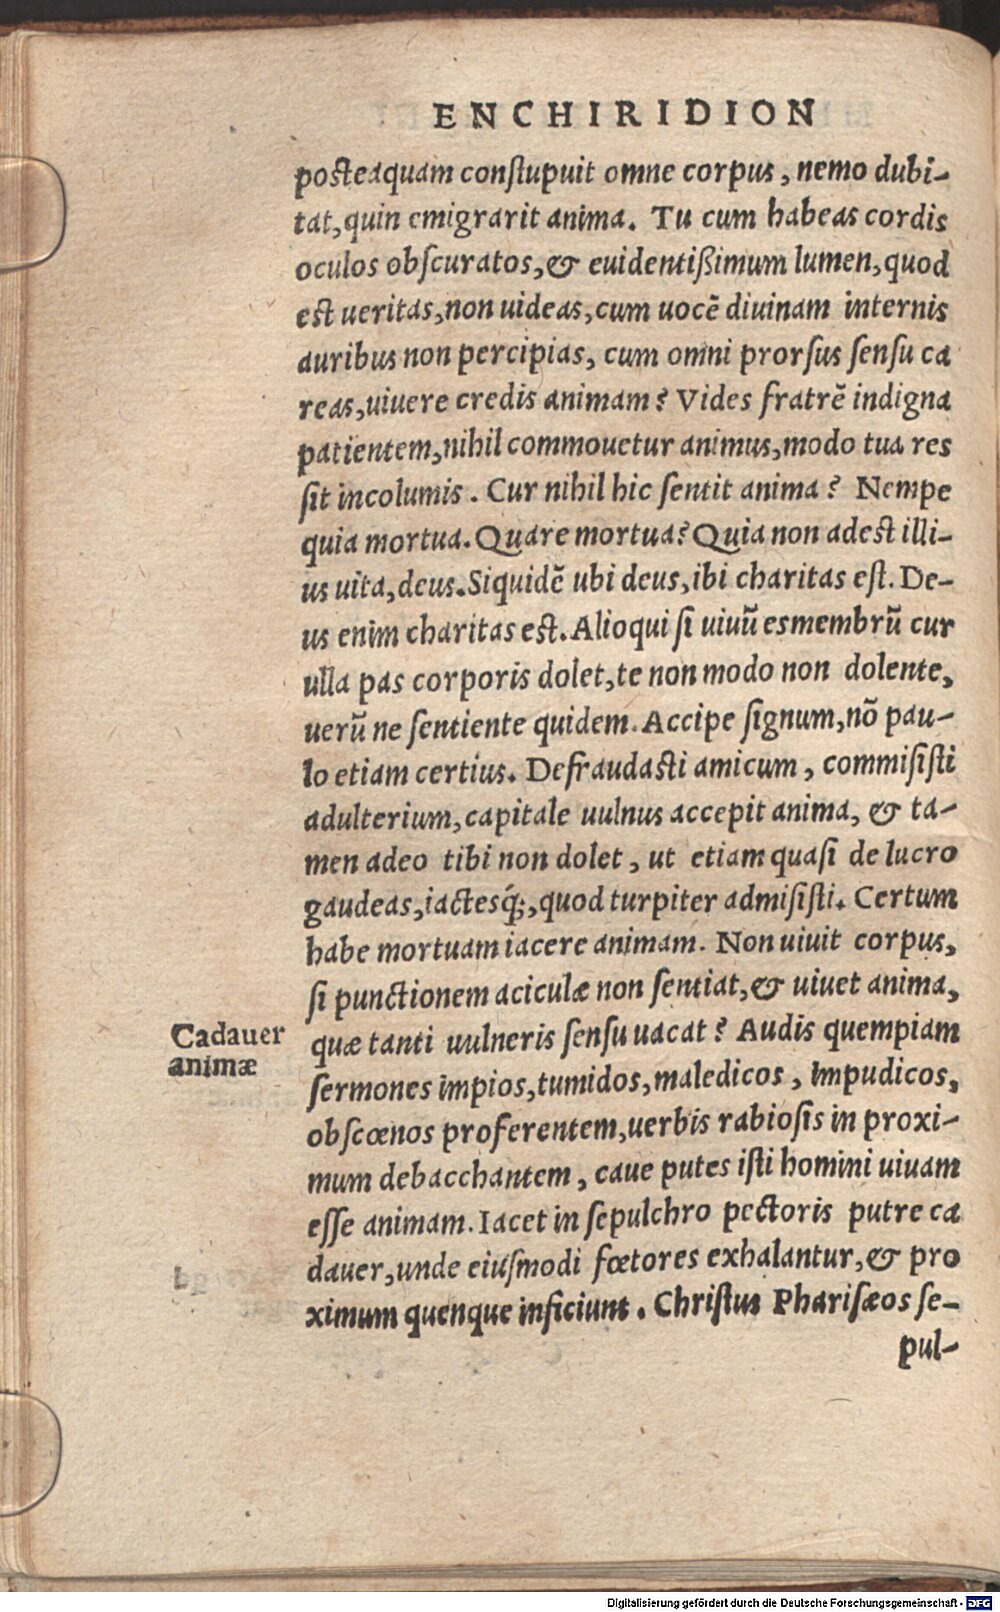 ENCHIRIDION
posteaquam conſtupuit omne corpus, nemo dubi-
tat, quin emigrarit anima. Tu cum habeas cordis
oculos obſcuratos, & euidentißimum lumen, quod
est ueritas, non uideas, cum uocē diuinam internis
auribus non percipias, cum omni prorſus ſenſu ca
reas, uiuere credis animam? Vides fratrē indigna
patientem, nihil commouetur animus, modo tua res
ſit incolumis. Cur nihil hic ſentit anima? Nempe
quia mortua. Quare mortua? Quia non adest illi-
us uita, deus. Siquidē ubi deus, ibi charitas eſt. De-
us enim charitas est. Alioqui ſi uiuū es membrū cur
ulla pas corporis dolet, te non modo non dolente,
uerū ne ſentiente quidem. Accipe ſignum, nō pau-
lo etiam certius. Defraudasti amicum, commiſiſti
adulterium, capitale uulnus accepit anima, & ta-
men adeo tibi non dolet, ut etiam quaſi de lucro
gaudeas, iactesq́;, quod turpiter admiſiſti. Certum
habe mortuam iacere animam. Non uiuit corpus,
ſi punctionem aciculæ non ſentiat, & uiuet anima,
Cadauer
animæ
quæ tanti uulneris ſenſu uacat? Audis quempiam
ſermones impios, tumidos, maledicos, impudicos,
obſcœnos proferentem, uerbis rabioſis in proxi-
mum debacchantem, caue putes iſti homini uiuam
eſſe animam. Iacet in ſepulchro pectoris putre ca
dauer, unde eiuſmodi fœtores exhalantur, & pro
ximum quenque inficiunt. Chriſtus Phariſæos ſe-
pul-
Digitalisierung gefördert durch die Deutsche Forschungsgemeinschaft - DFG